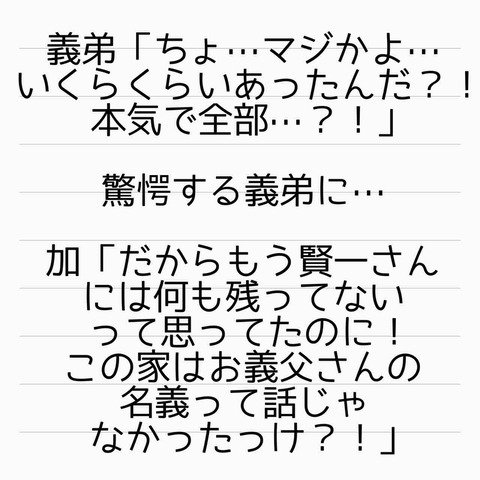 義弟「ちょ…マジかよ…
いくらくらいあったんだ？！
本気で全部…？！」
驚愕する義弟に…
加「だからもう賢一さん
には何も残ってない
って思ってたのに！
この家はお義父さんの
名義って話じゃ
なかったっけ？！」